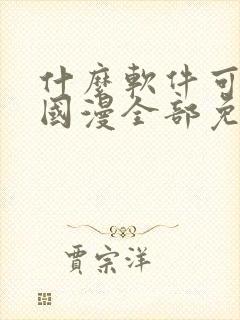 什麼軟件可
國漫全部免
賈宗洋